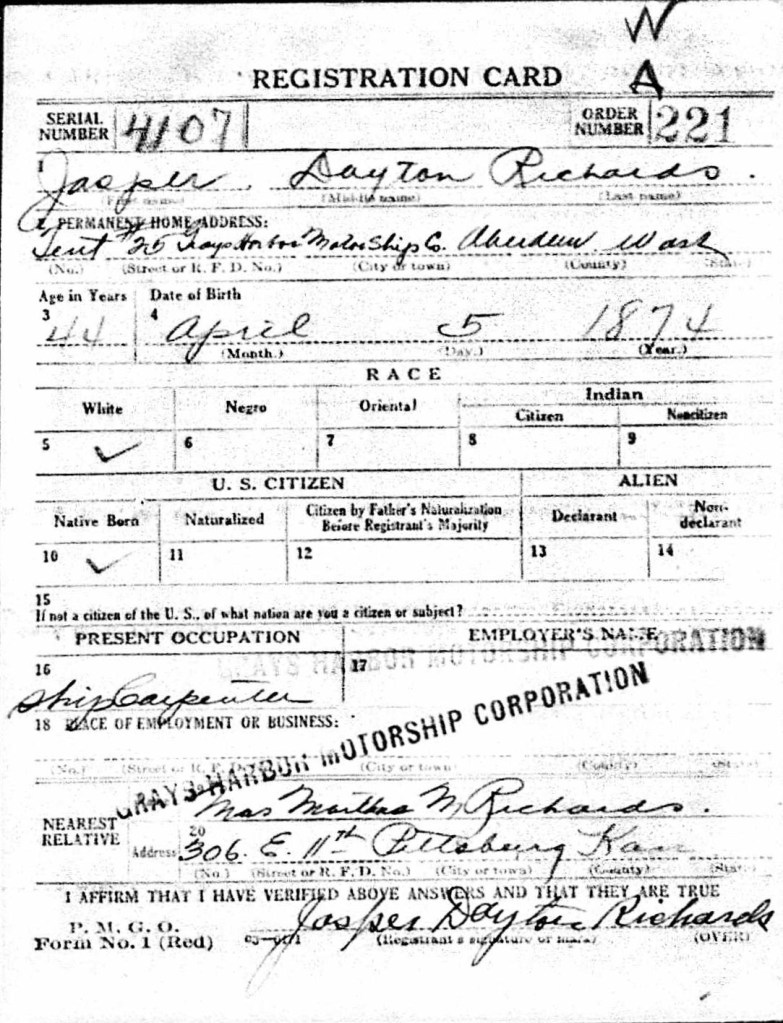 W
A
REGISTRATION CARD
SERIAL NUMBER 4107 ORDER NUMBER 221
1 Jasper Dayton Richards.
(First name) (Middle name) (Last name)
2 PERMANENT HOME ADDRESS:
Tent #25 Grays Harbor Motor Ships Co. Aberdeen Wash
(No.) (Street or R. F. D. No.) (City or town) (County) (State)
Age in Years Date of Birth
3 4
44 April 5 1874
(Month.) (Day.) (Year.)
RACE
White Negro Oriental Indian
Citizen Noncitizen
5 ✓ 6 7 8 9
U. S. CITIZEN ALIEN
Native Born Naturalized Citizen by Father's Naturalization Before Registrant's Majority Declarant Non-declarant
10 ✓ 11 12 13 14
15
If not a citizen of the U. S., of what nation are you a citizen or subject?
PRESENT OCCUPATION EMPLOYER'S NAME
16 17
GRAYS HARBOR MOTORSHIP CORPORATION
Ship Carpenter
18 PLACE OF EMPLOYMENT OR BUSINESS:
GRAYS HARBOR MOTORSHIP CORPORATION
(No.) (Street or R. F. D. No.) (City or town) (County) (State)
NEAREST RELATIVE
Mrs Martha M Richards.
20
Address 306. E. 11th Pittsburg Kan
(No.) (Street or R. F. D. No.) (City or town) (County) (State)
I AFFIRM THAT I HAVE VERIFIED ABOVE ANSWERS AND THAT THEY ARE TRUE
P. M. G. O.
Form No. 1 (Red) Jasper Dayton Richards
(Registrant's signature or mark) (OVER)